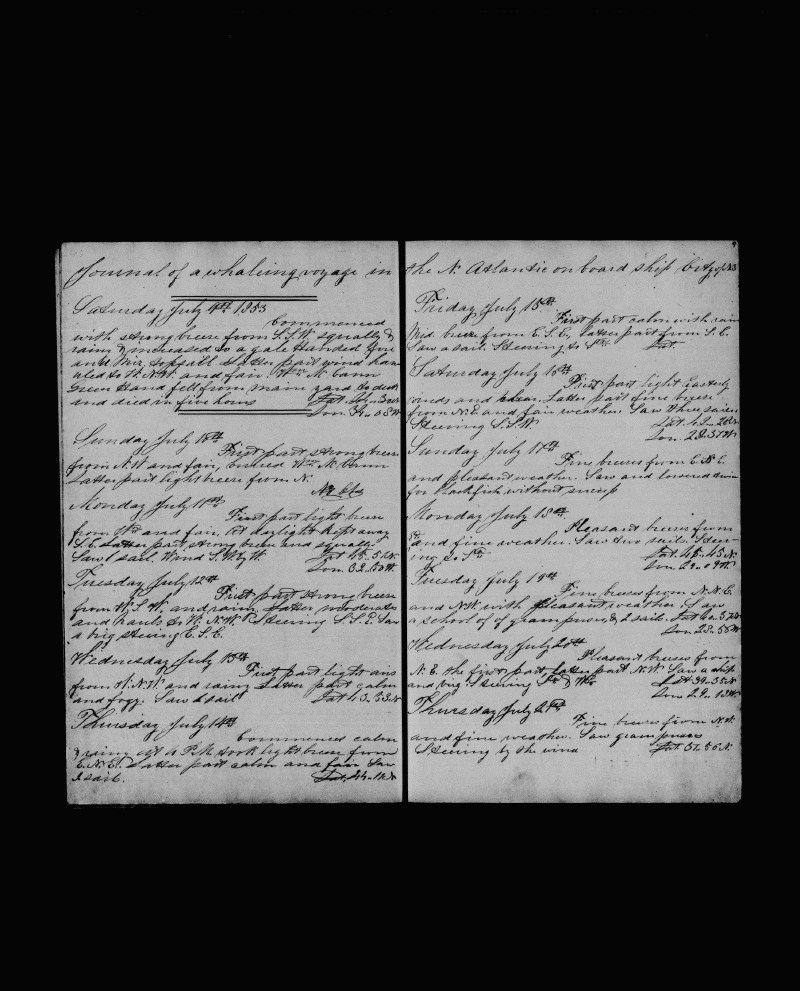 Journal of a whaleing voyage in
Saturday July 9th 1853
Commenced
with strong breeze from S.S.W. squally &
rain & increased to a gale Handed Fore
and Miz. topsails Latter part wind hau
uled to the N.W. and fair. Wm M.
Green Hand fell from main yard to deck
and died in five hours Lat.
Lon.
Sunday July 10th
First part strong breeze
from N.W and fair, buried Wm M.
Latter part light breeze from N.
No Obs
Monday July 11th
First part light breeze
from Wd and fair. At daylight kept away
S.E. Latter part strong breeze and squally
Saw 1 sail. Wind S.W by W. Lat
Lon. 32..50 W
Tuesday July 12th
First part strong breeze
from W.S.W. and rainy. Latter moderates
and hauls to W.N.W. Steering S.S.E. Saw
a brig steering E.S.E.
Wednesday July 13th
First part light airs
from W.N.W. and rainy Latter part calm
and fogy. Saw 1 sail Lat 43..33 N
Thursday July 14th
Commenced calm
& rainy. At 6 P.M. took light breeze from
E.N.E. Latter part calm and fair Saw
2 sail. Lat.
the N. Atlantic on board ship City of
9
Friday July 15th
First part calm with rain
Mid. breeze from E.S.E. Latter part from S.E.
Saw a sail. Steering to Lat
Saturday July 16th
First part light Easterly
winds and clear. Latter part fine breeze
from N.E and fair weather. Saw three sails
Steering S.S.W. Lat. 42..
Lon. 28..37 W
Sunday July 17th
Fine breezes from E.N.E.
and pleasant weather. Saw and lowered down
for blackfish without success
Monday 18th
Pleasant breezes from
and fine weather. Saw two sails. Steer-
ing Lat.
Lon. 29..09 W
Tuesday July 19th
Fine breezes from N.N.E.
and NW with pleasant weather. Saw
a school of of grampuses & 2 sails. Lat 40..37 N
Lon. 28..56 W
Wednesday July 20th
Pleasant breezes from
N.E. the first part, latter part N.W. Saw a ship
and brig. Steering Lat 39..35 N
Lon 29..
Thursday July 21st
Fine breezes from N.W.
and fine weather. Saw grampuses
Steering by the wind Lat.